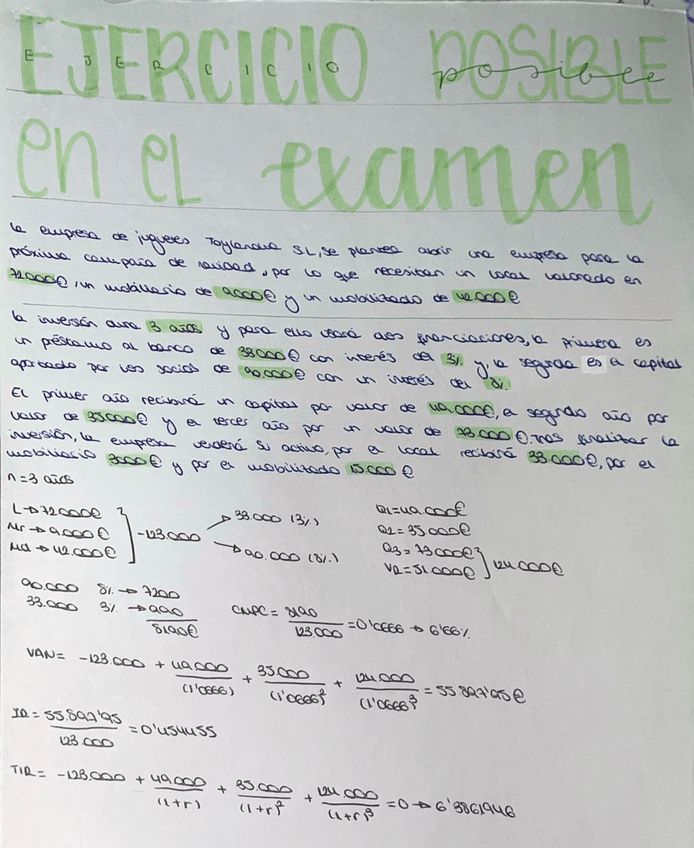 EJERCICIO POSIBLE
EJERCICIO posible
en el examen
La empresa de juguetes Toylandia SL, se plantea abrir una empresa para la
próxima campaña de navidad, por lo que necesitan un local valorado en
72000€, un mobiliario de 9000€ y un mobilitado de 42.000€
la inversión dura 3 años y para ello usará dos financiaciones, la primera es
un préstamo al banco de 33000€ con interés del 3% y, la segunda es el capital
aportado por los socios de 90.000€ con un interés del 8%.
El primer año recibirá un capital por valor de 49.000€, el segundo año por
valor de 35000€ y el tercer año por un valor de 73000€, tras finalizar la
inversión, la empresa venderá su activo, por el local recibirá 33000€, por el
mobiliario 3000€ y por el mobilitado 15000€
n=3 años
L→72000€
Mr→9.000€
Md→42.000€
-123.000
33.000 (3%)
90.000 (8%)
Q1=49.000€
Q2=35000€
Q3=73000€
VR=51.000€
124.000€
90.000 8%→7200
33.000 3%→990
8190€
CMPC= 8190/123000 =0'0666→6'66%
VAN= -123.000 + 49.000/(1'0666) + 35.000/(1'0666)² + 124.000/(1'0666)³ = 55.897'95€
IR= 55.897'95/123.000 =0'454455
TIR= -123.000 + 49.000/(1+r) + 35.000/(1+r)² + 124.000/(1+r)³ =0→6'3861946